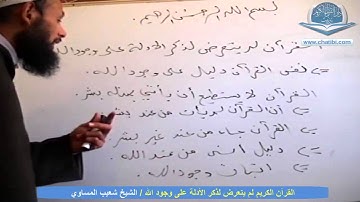 بسم الله الرحمن الرحيم.
القرآن لم يتعرض لذكر الأدلة على وجود الله
نفس القرآن دليل على وجود الله.
القرآن لا يستطيع أن يأتي بمثله بشر.
أن القرآن لم يأت من عند بشر
القرآن جاء من عند غير بشر
دليل أنه من عند الله.
اثبات وجود الله.
www.chatibi.com
القرآن الكريم لم يتعرض لذكر الأدلة على وجود الله / الشيخ شعيب المساوي